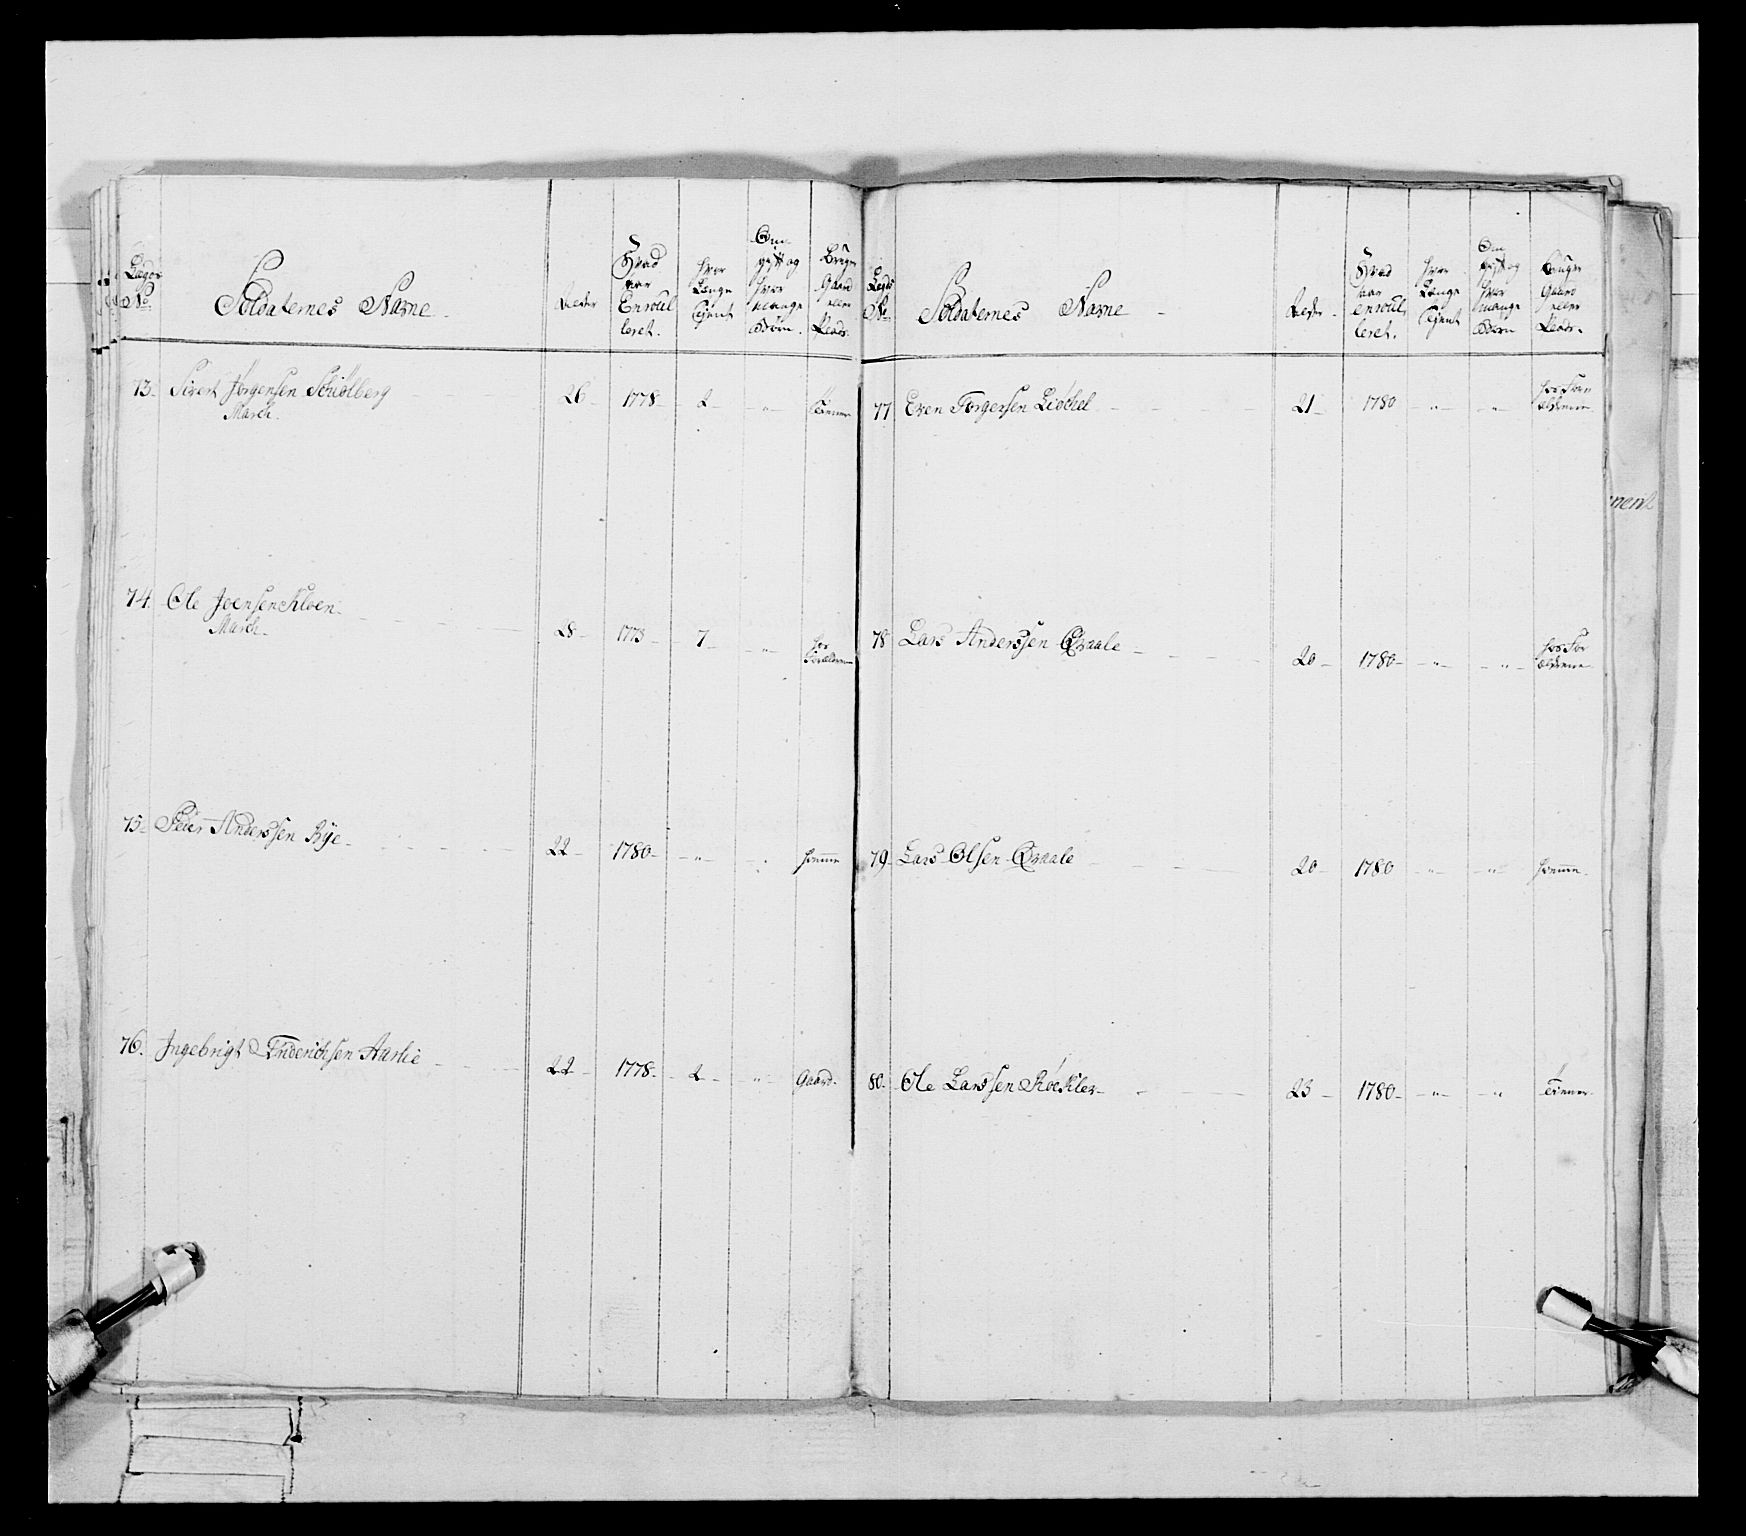 Lægds No: Soldaternes Navne. Alder Hvad aar Enroulleret. Hvor Længe Tjent Om gift og hvor mange Børn. Bruger Gaard eller Plads.
73. Sivert Jørgensen Schiølberg 26 1778 2 — " — Tiener
March.
74. Ole Joensen Kloen 28 1773 7 — " — hos Forældrene
March.
75. Peder Anderssen Rÿe 22 1780 — " — hiemme
76. Ingebrigt Enderichsen Aarlie 22 1778 2 — " — Gaard.
Lægds No: Soldaternes Navne Alder. Hvad aar enroulleret. Hvor Længe Tjent Om gift og hvor mange Børn Bruger Gaard eller Plads.
77 Even Torgersen 21 1780 — " — " — hos Forældrene
78 Lars Anderssen Qvaale 20 1780 — " — " — hos Forældrene
79. Lars Olsen Qvaale 20 1780 — " — " — hiemme.
80. Ole Larssen 23 1780 — " — " Tiener
ment